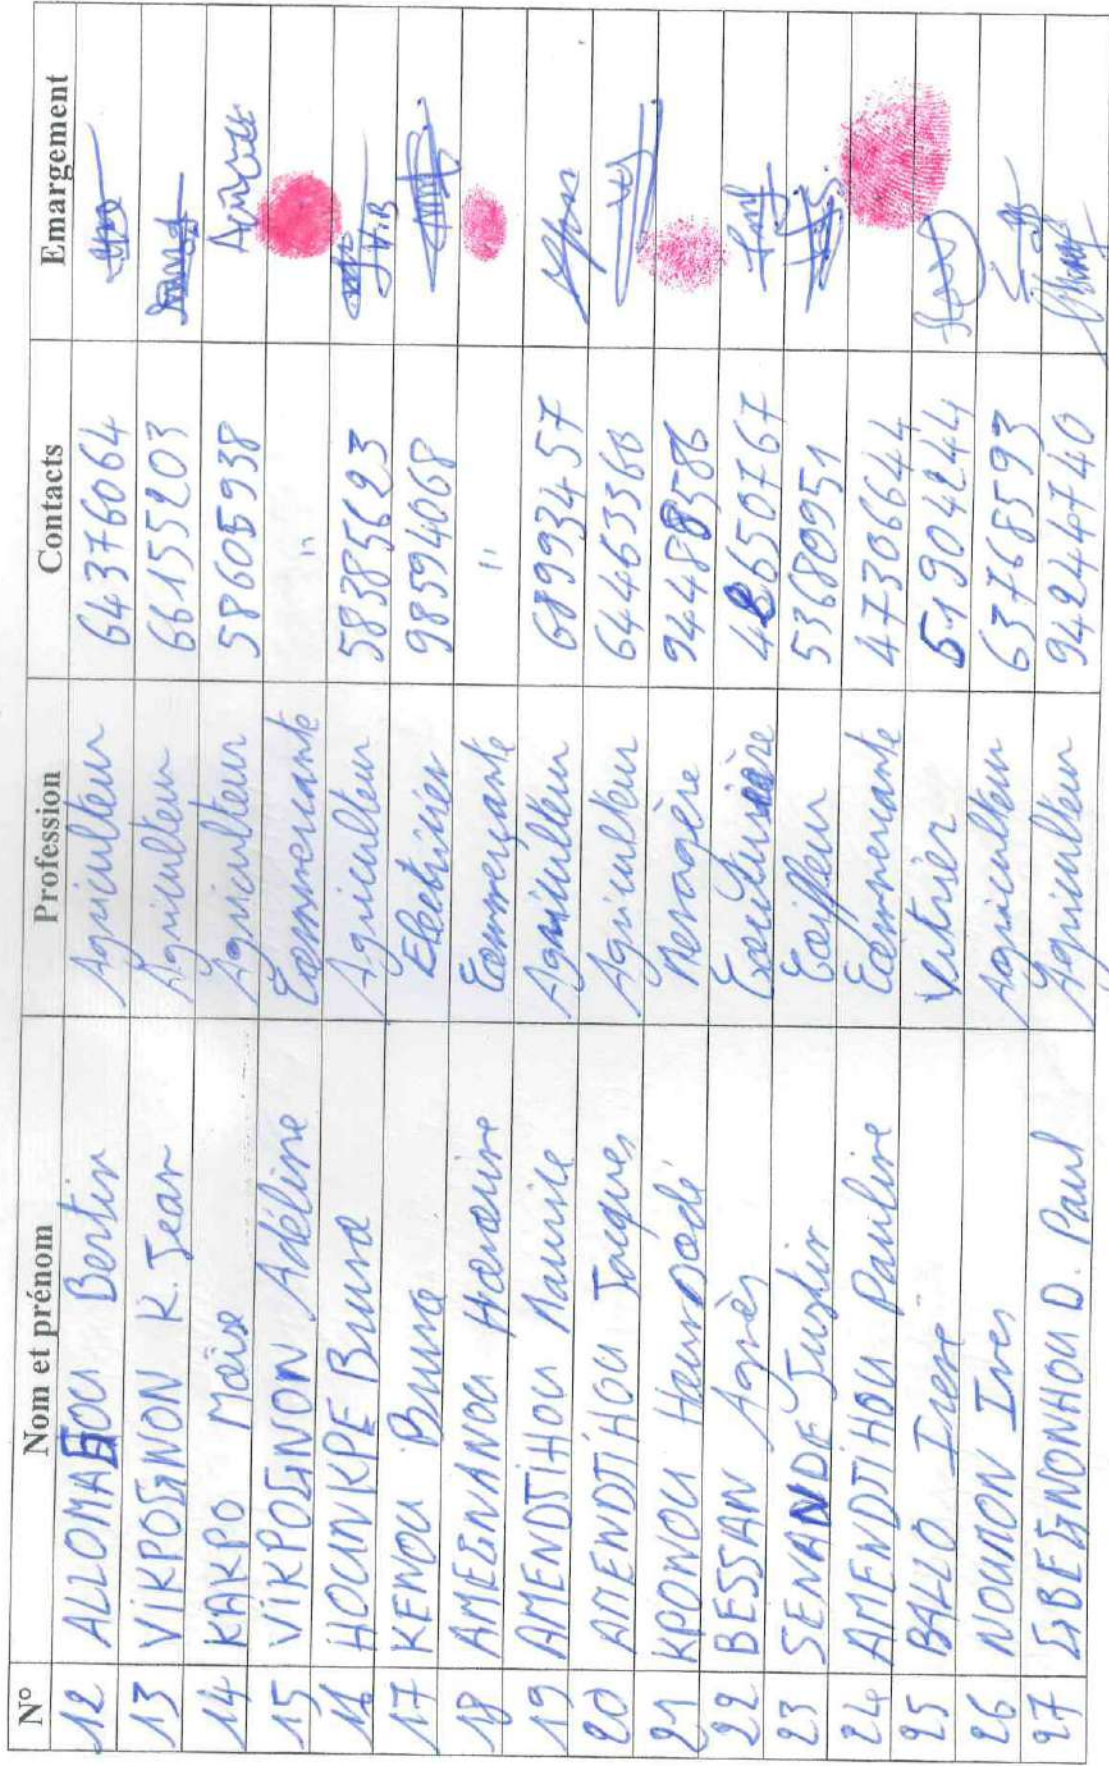 N° Nom et prénom Profession Contacts Emargement
12 ALLOMAGOU Bertin Agriculteur 64376064
13 VIKPOGNON K. Jean Agriculteur 66155203
14 KAKPO Moïse Agriculteur 58605938
15 VIKPOGNON Adéline Commercante "
16 HOUNKPE Bruno Agriculteur 58385623 V.B
17 KENOU Bruno Electricien 98594068
18 AMEGNANOU Honorine Commerçante "
19 AMENDJIHOU Maurice Agriculteur 68993457
20 AMENDJIHOU Jacques Agriculteur 64463360
21 KPONOU Menagère 94488586
22 BESSAN Agnès Couturière 50767
23 SENANDE Justin Coiffeur 53680951
24 AMENDJIHOU Pauline Commercante 47306644
25 BALLO Irené Vitrier 51904244
26 NOUMON Ives Agriculteur 63768593
27 GBEGNONHOU D. Paul Agriculteur 94244740